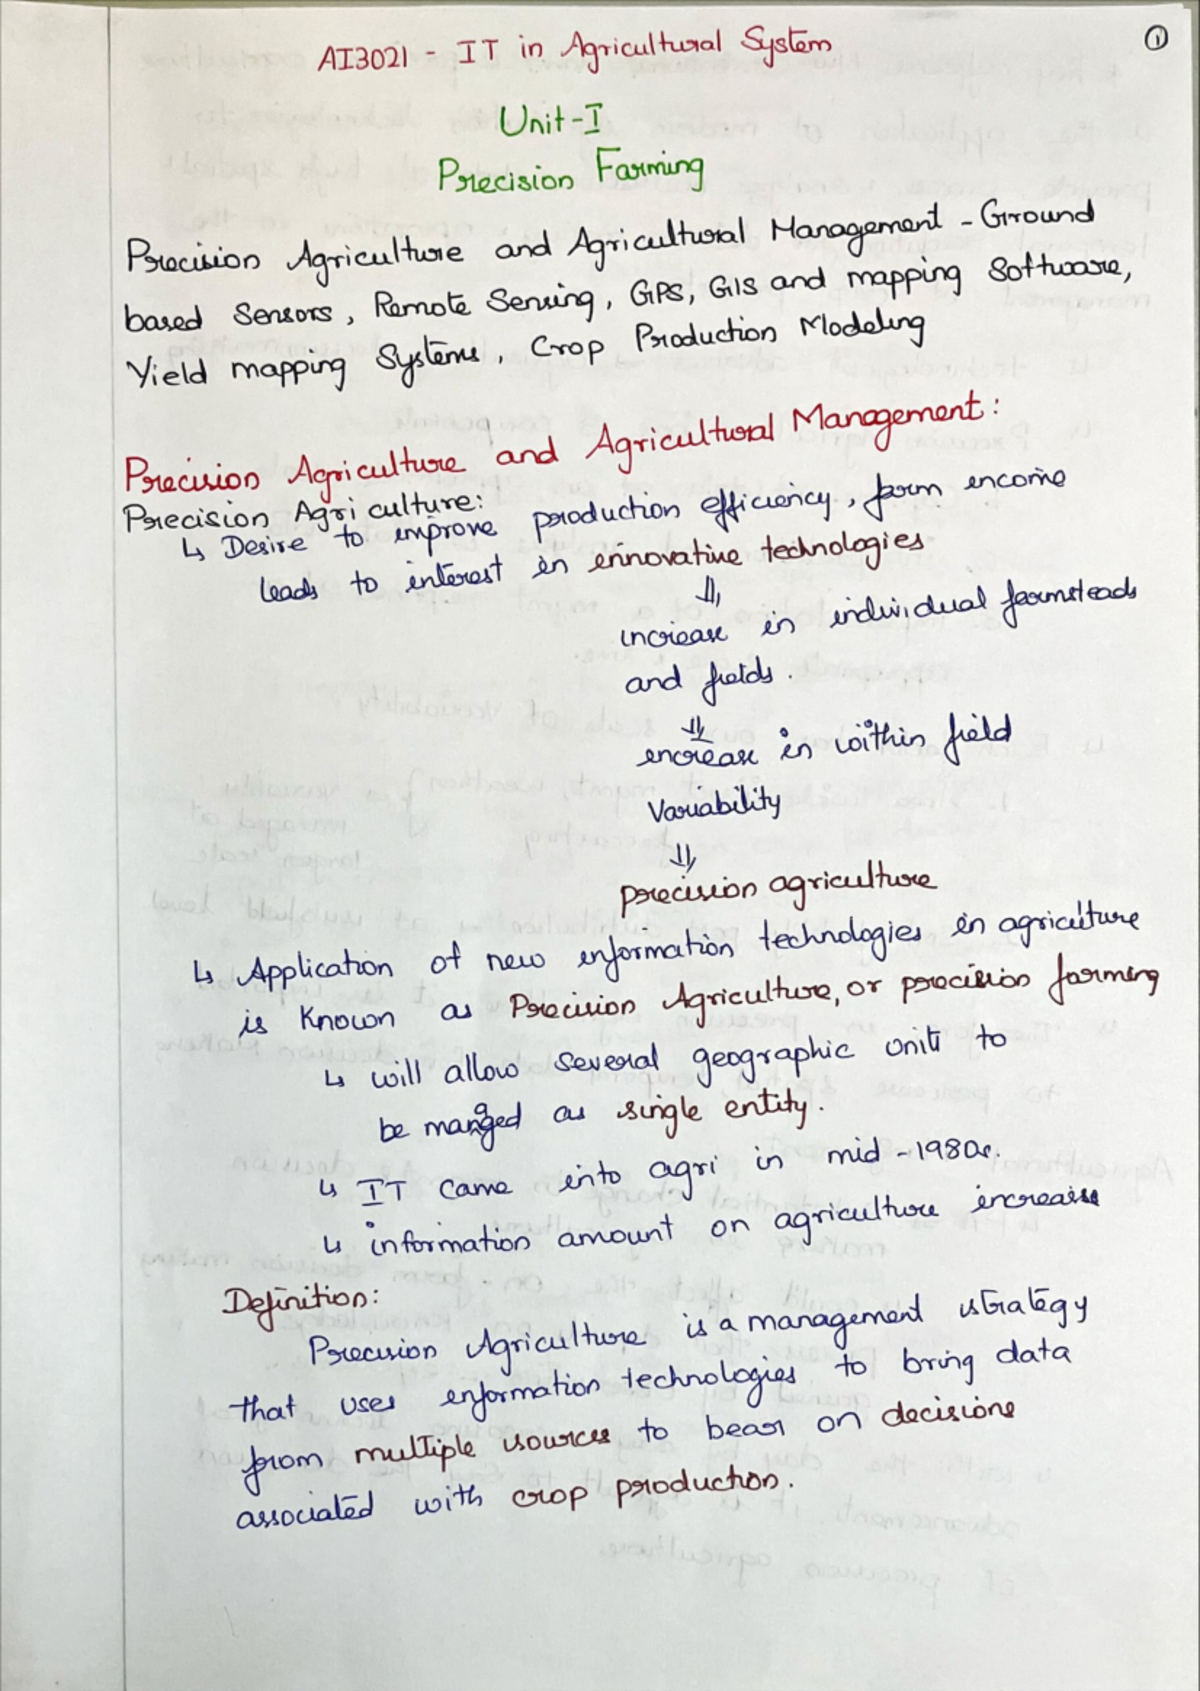 ①
AI3021 - IT in Agricultural System
Unit-I
Precision Farming
Precision Agriculture and Agricultural Management - Ground
based Sensors, Remote Sensing, GPS, GIS and mapping Software,
Yield mapping Systems, Crop Production Modeling
Precision Agriculture and Agricultural Management:
Precision Agriculture:
↳ Desire to improve production efficiency, farm encome
leads to interest in ennovative technologies
⇓
increase in individual farmsteads
and fields.
⇓
encrease in within field
Variability
⇓
precision agriculture
↳ Application of new enformation technologies in agriculture
is Known as Precision Agriculture, or precision farming
↳ will allow several geographic units to
be managed as single entity.
↳ IT came into agri in mid -1980s.
↳ information amount on agriculture increases
Definition:
Precision Agriculture is a management strategy
that uses enformation technologies to bring data
from multiple sources to bear on decisions
associated with crop production.